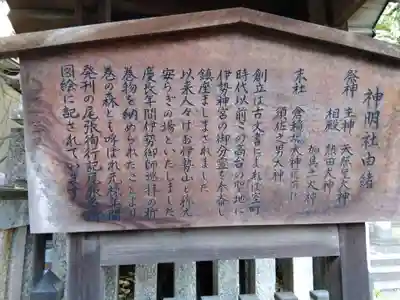 神明社由緒
祭神 主神 天照皇大神
相殿 熱田大神
加具土大神
末社 倉稲大神
須佐之男大神
創立は古文書によれば室町
時代以前この高台の聖地に
伊勢神宮の御分霊を奉斎し
鎮座しまされました
以来人々はお伊勢山と称え
安らぎの場といたしました
慶長年間伊勢御師巡拝の折
巻物を納められたことより
巻の森とも呼ばれ 年間
発刊の尾張徇行記
図絵に記されています